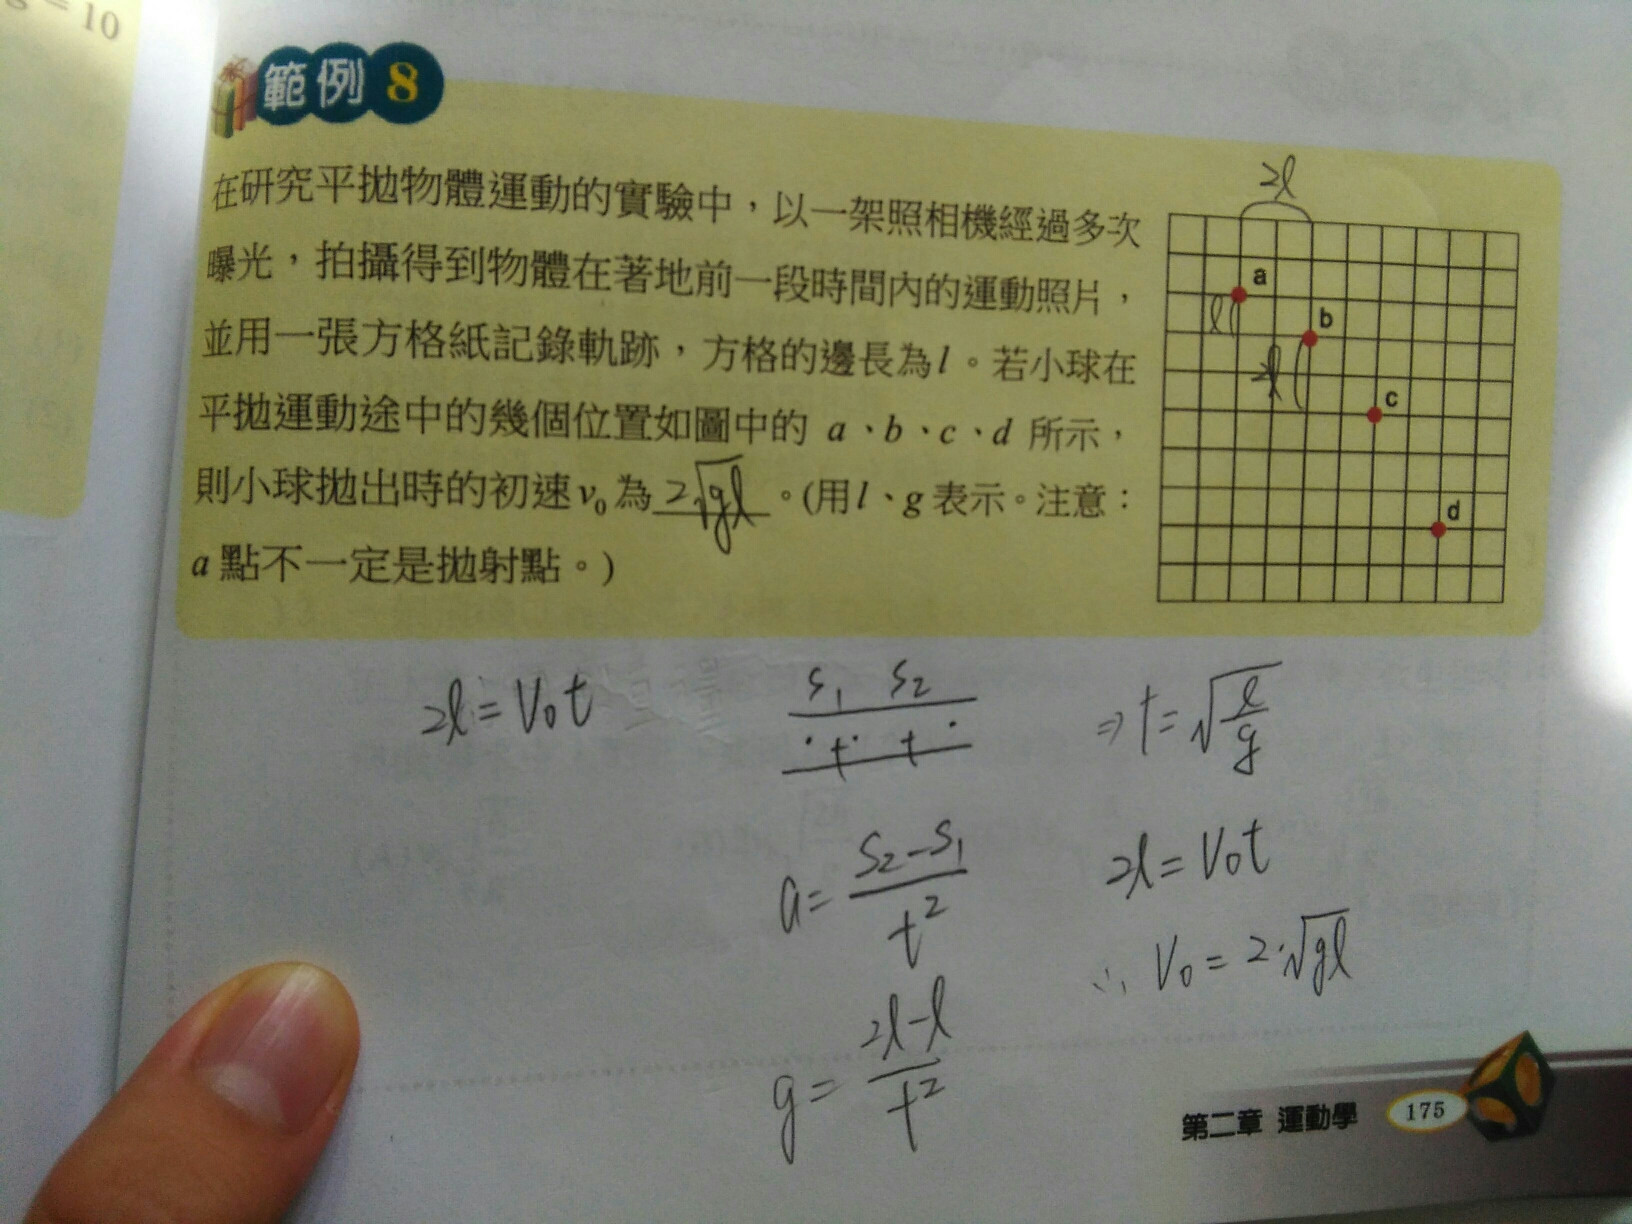 = 10
範例 8
在研究平拋物體運動的實驗中,以一架照相機經過多次
曝光,拍攝得到物體在著地前一段時間內的運動照片,
並用一張方格紙記錄軌跡,方格的邊長為l。若小球在
平拋運動途中的幾個位置如圖中的 a、b、c、d 所示,
則小球拋出時的初速v₀為2√gl。(用l、g表示。注意:
a點不一定是拋射點。)
2l
a
l
b
2l
c
d
2l = V₀t
S₁ S₂
t t
a = (S₂-S₁)/t²
g = (2l-l)/t²
⇒ t = √(l/g)
2l = V₀t
∴ V₀ = 2·√gl
第二章 運動學 175